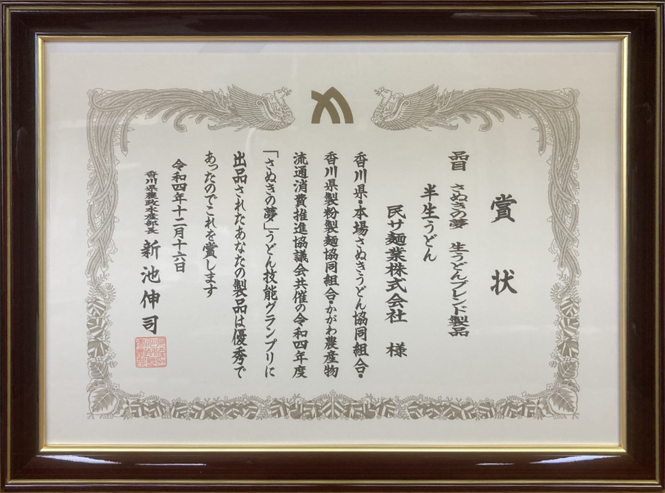 賞状
品目 さぬきの夢 生うどんブレンド製品
半生うどん
民サ麺業株式会社 様
香川県・本場さぬきうどん協同組合・
香川県製粉製麺協同組合・かがわ農産物
流通消費推進協議会共催の令和四年度
「さぬきの夢」うどん技能グランプリに
出品されたあなたの製品は優秀で
あったのでこれを賞します
令和四年十二月十六日
香川県農政水産部長 新池伸司